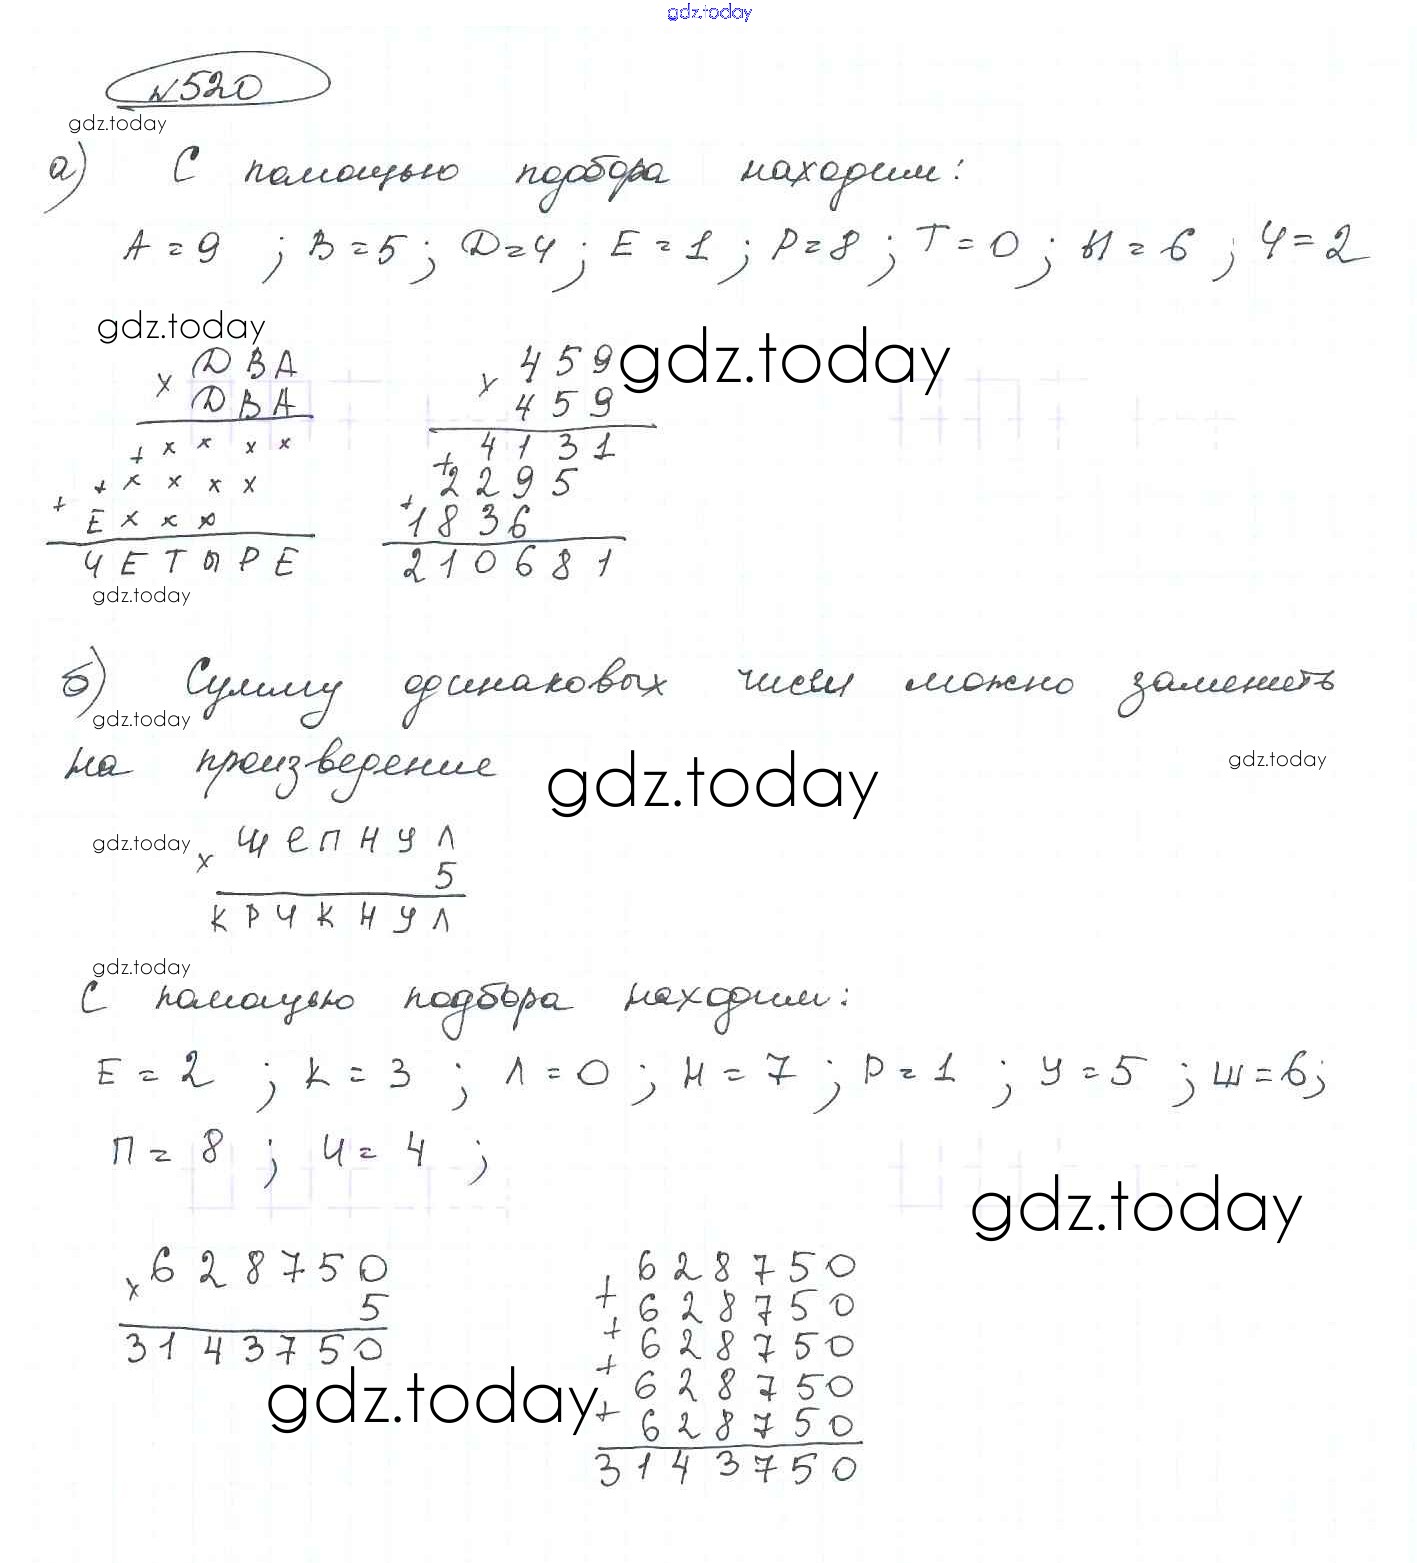 gdz.today
№520
gdz.today
а) С помощью подбора находим:
А=9 ; В=5; Д=4; Е=1; Р=8; Т=0; Ы=6; Ч=2
gdz.today
gdz.today
× Д В А
Д В А
+ × × × ×
+ × × × ×
+ Е × × ×
Ч Е Т Ы Р Е
× 4 5 9
4 5 9
+ 4 1 3 1
+ 2 2 9 5
1 8 3 6
2 1 0 6 8 1
gdz.today
б) Сумму одинаковых чисел можно заменить
gdz.today
на произведение
gdz.today
gdz.today
gdz.today
× Щ Е П Н У Л
5
К Р Ч К Н У Л
gdz.today
С помощью подбора находим:
Е = 2 ; К = 3 ; Л = 0 ; Н = 7 ; Р = 1 ; У = 5 ; Щ = 6;
П = 8 ; Ч = 4 ;
gdz.today
× 6 2 8 7 5 0
5
3 1 4 3 7 5 0
+ 6 2 8 7 5 0
+ 6 2 8 7 5 0
+ 6 2 8 7 5 0
+ 6 2 8 7 5 0
6 2 8 7 5 0
3 1 4 3 7 5 0
gdz.today